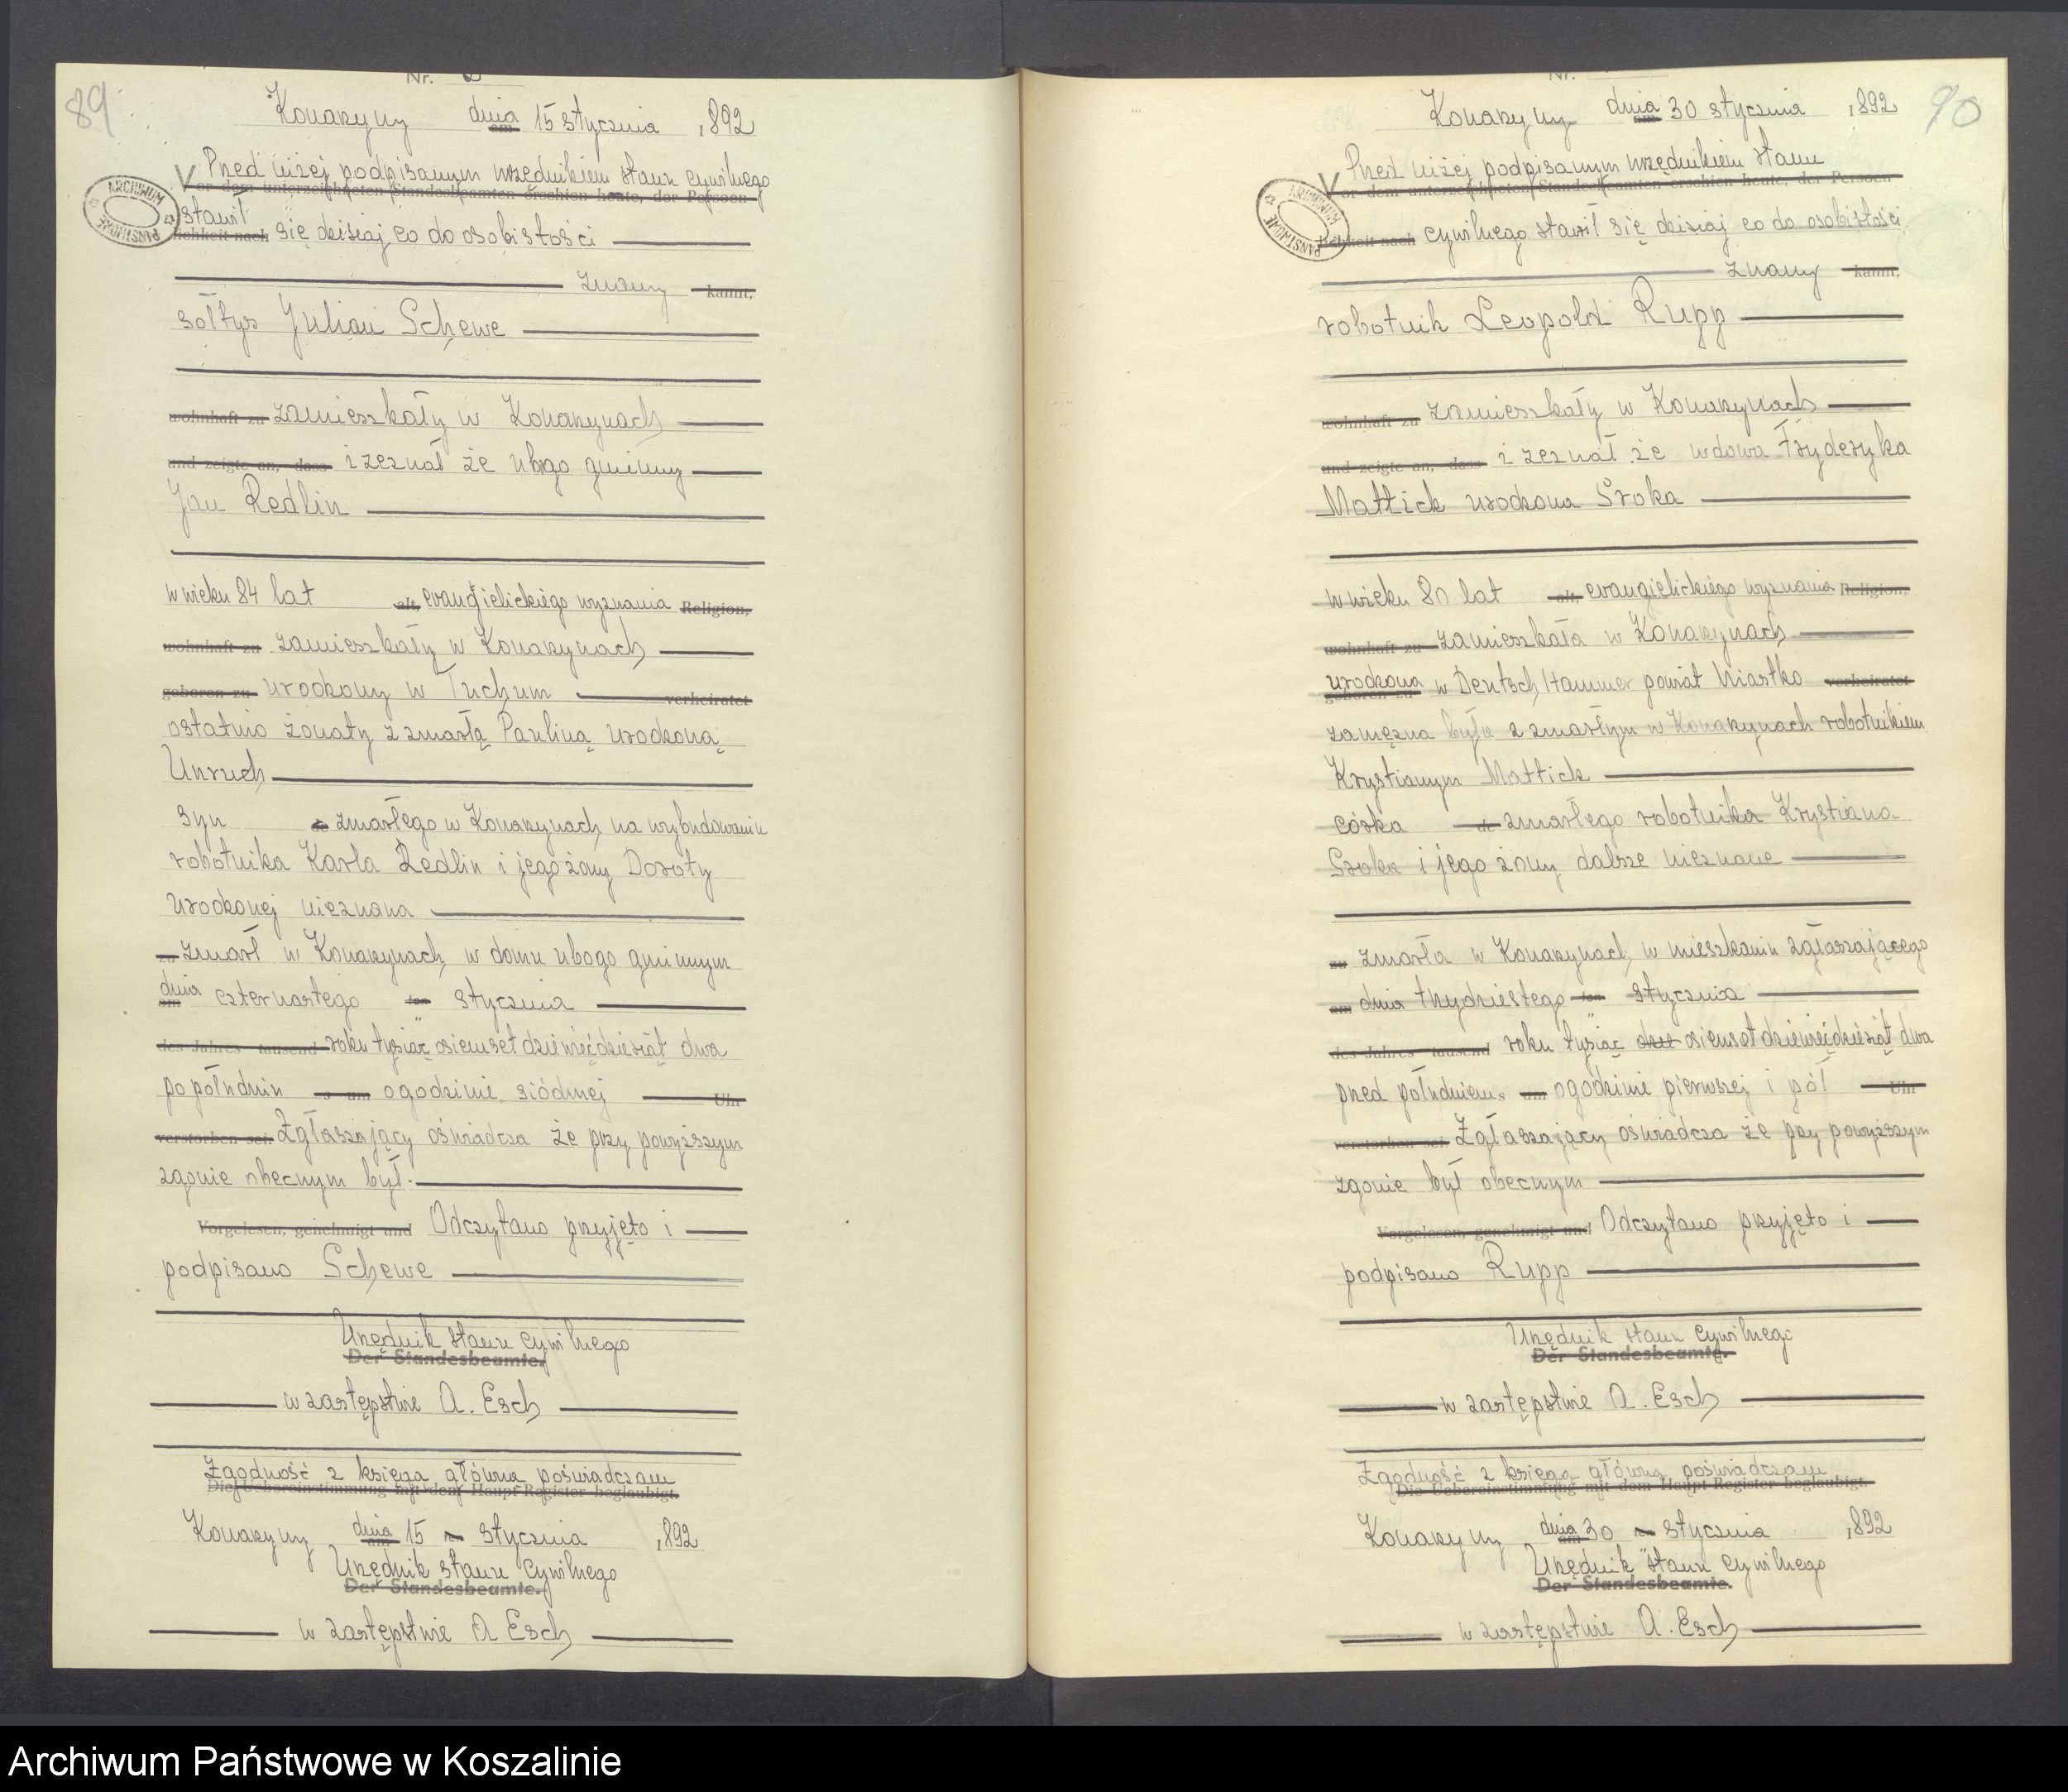 89
Nr.
Konarzyny dnia am 15 stycznia 1892
Przed niżej podpisanym urzędnikiem stanu cywilnego
Vor dem unterzeichneten Standesbeamten erschien heute, der Persoen-
stawił
lichkeit nach się dzisiaj co do osobistości
znany kannt,
sołtys Julian Schewe
wohnhaft zu zamieszkały w Konarzynach
und zeigte an, dass i zeznał że ubogo gminny
Jan Redlin
w wieku 84 lat alt, evangielickiégo wyznania Religion,
wohnhaft zu zamieszkały w Konarzynach
geboren zu urodzony w Tuchum verheiratet
ostatnio żonaty z zmarłą Pauliną urodzoną
Unruch
syn de zmarłego w Konarzynach na wybudowaniu
robotnika Karla Redlin i jego żony Doroty
urodzonej nieznana
zu zmarł w Konarzynach w domu ubogo gminnym
dnia am czternastego ten stycznia
des Jahres tausend roku tysiąc osiemset dziewięćdziesiąt dwa
po południu s um o godzinie siódmej Uhr
verstorben sei. Zgłaszający oświadcza że przy powyższym
zgonie obecnym był.
Vorgelesen, genehmigt und Odczytano przyjęto i
podpisano Schewe
Urzędnik stanu cywilnego
Der Standesbeamte.
w zastępstwie A. Esch
Zgodność z księgą główną poświadczam
Die Uebereinstimmung mit dem Haupt-Register beglaubigt.
Konarzyny dnia am 15 stycznia 1892
Urzędnik stanu cywilnego
Der Standesbeamte.
w zastępstwie A Esch
ARCHIWUM PAŃSTWOWE
90
Nr.
Konarzyny dnia am 30 stycznia 1892
Przed niżej podpisanym urzędnikiem stanu
Vor dem unterzeichneten Standesbeamten erschien heute, der Persoen-
lichkeit nach cywilnego stawił się dzisiaj co do osobistości
znany kannt,
robotnik Leopold Rupp
wohnhaft zu zamieszkały w Konarzynach
und zeigte an, dass i zeznał że wdowa Fryderyka
Mattick urodzona Sroka
w wieku 80 lat alt, evangielickiégo wyznania Religion,
wohnhaft zu zamieszkała w Konarzynach
urodzona geboren zu w Deutsch Hammer powiat Miastko verheiratet
zamężna była z zmarłym w Konarzynach robotnikiem
Krystianym Mattick
córka de zmarłego robotnika Krystiana
Sroka i jego żony dalsze nieznane
zu zmarła w Konarzynach w mieszkaniu zgłaszającego
am dnia trzydziestego ten stycznia
des Jahres tausend roku tysiąc osiemset dziewięćdziesiąt dwa
przed południem s um o godzinie pierwszej i pół Uhr
verstorben sei. Zgłaszający oświadcza że przy powyższym
zgonie był obecnym
Vorgelesen, genehmigt und Odczytano przyjęto i
podpisano Rupp
Urzędnik stanu cywilnego
Der Standesbeamte.
w zastępstwie A. Esch
Zgodność z księgą główną poświadczam
Die Uebereinstimmung mit dem Haupt-Register beglaubigt.
Konarzyny dnia am 30 stycznia 1892
Urzędnik stanu cywilnego
Der Standesbeamte.
w zastępstwie A. Esch
ARCHIWUM PAŃSTWOWE
Archiwum Państwowe w Koszalinie